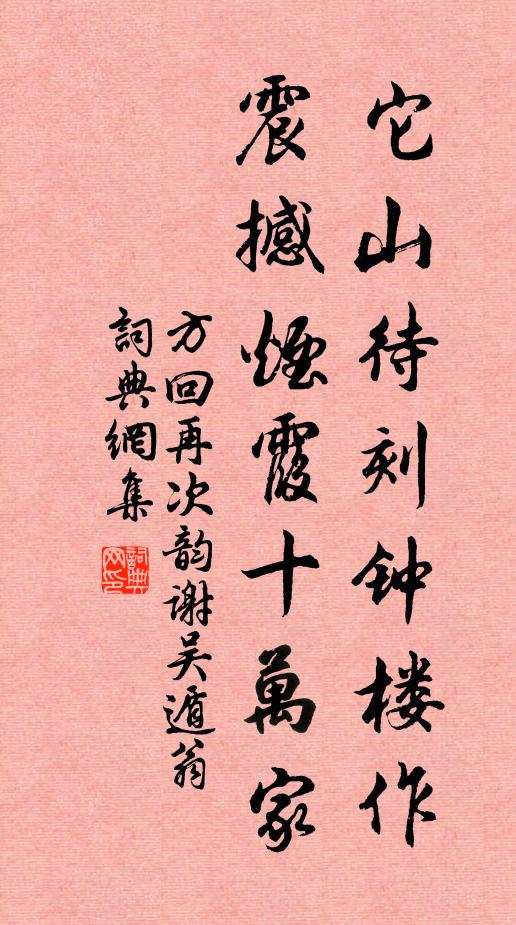 它山待刻钟楼作
震撼煙霞十萬家
方回再次韵谢吴遁翁
詞典網集
詞典网印